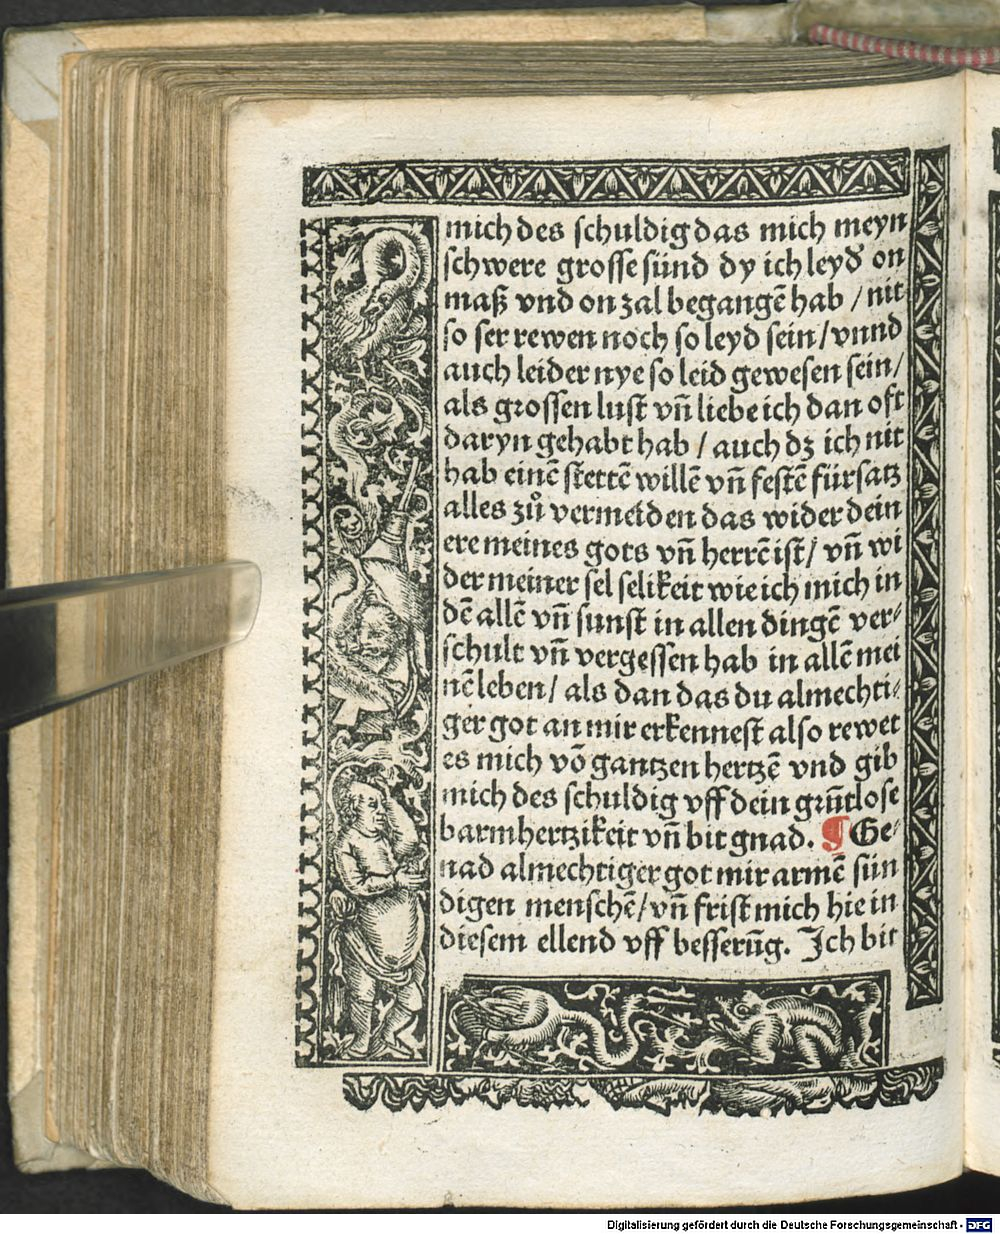 mich des schuldig das mich meyn
schwere grosse sünd dy ich leyd᷑ on
maß vnd on zal begangē hab / nit
so ser rewen noch so leyd sein / vnnd
auch leider nye so leid gewesen sein /
als grossen lust vn̄ liebe ich dan oft
daryn gehabt hab / auch dz ich nit
hab einē stettē willē vn̄ festē fürsatz
alles zů vermeiden das wider dein
ere meines gots vn̄ herrē ist / vn̄ wi
der meiner sel selikeit wie ich mich in
dē allē vn̄ sunst in allen dingē ver⸗
schult vn̄ vergessen hab in allē mei
nē leben / als dan das du almechti⸗
ger got an mir erkennest also rewet
es mich vō gantzen hertzē vnd gib
mich des schuldig vff dein grūtlose
barmhertzikeit vn̄ bit gnad. ¶ Ge⸗
nad almechtiger got mir armē sün
digen menschē / vn̄ frist mich hie in
diesem ellend vff besserūg. Ich bit
Digitalisierung gefördert durch die Deutsche Forschungsgemeinschaft - DFG